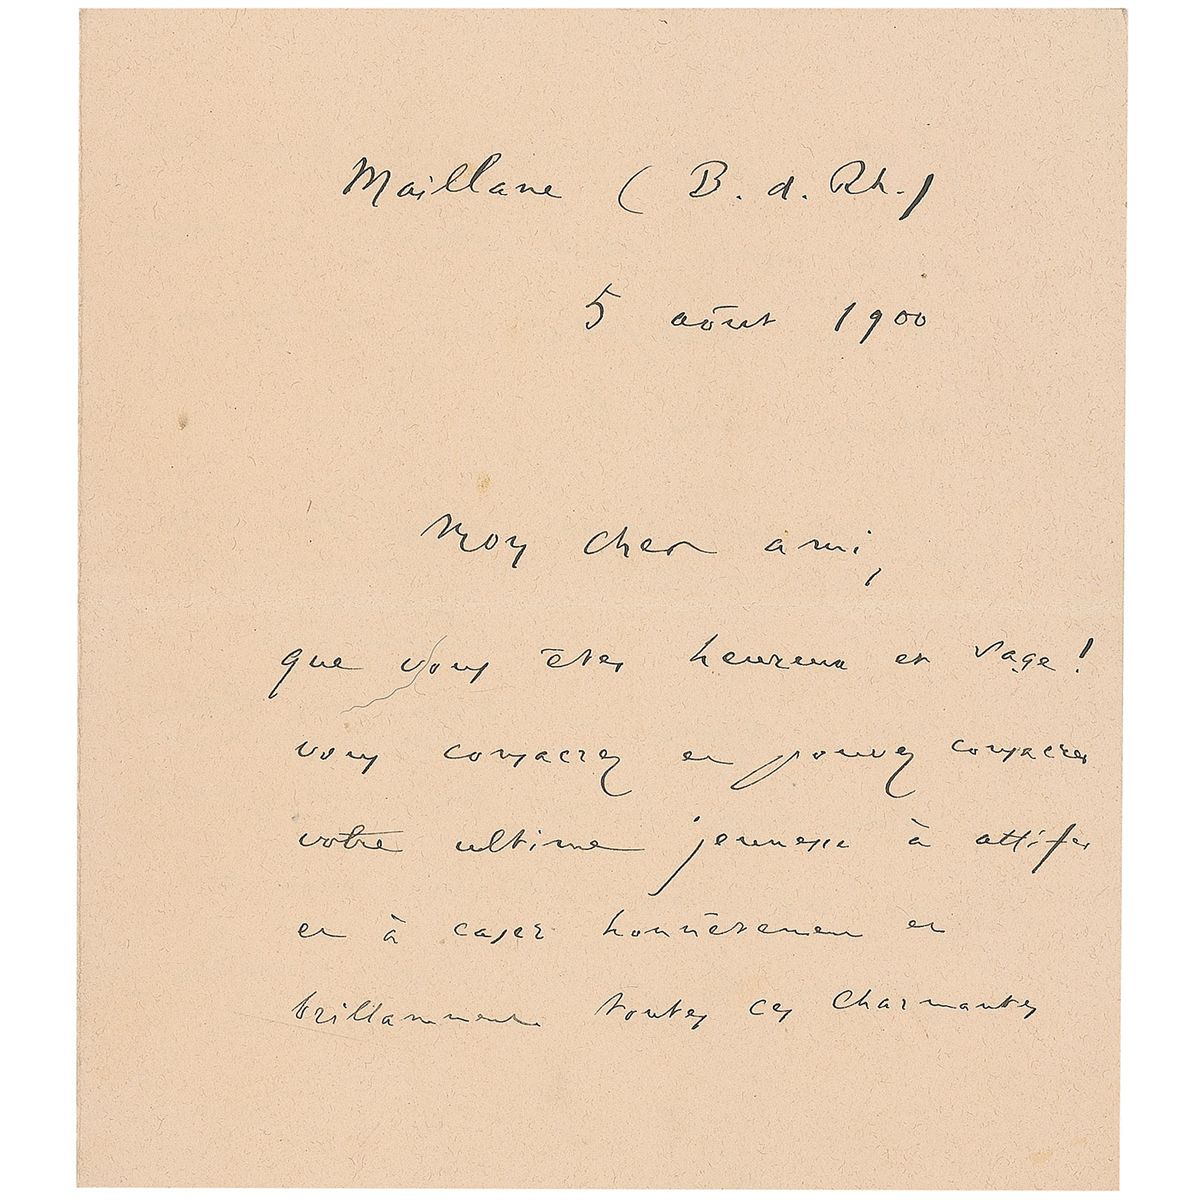 Maillane (B. d. Rh.)
5 août 1900
Mon cher ami,
que vous êtes heureux et sage!
vous consacrez et pouvez consacrer
votre ultime jeunesse à attifer
et à caser honnêtement et
brillamment toutes ces charmantes